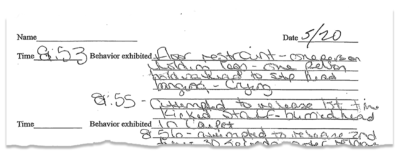 Name Date 5/20
Time 8:53 Behavior exhibited floor restraint - one person
holding legs - one person
to stop head
banging - crying
8:55 - attempted to release 1st time
kicked staff - buried head
Time Behavior exhibited in carpet
8:56 - attempted to release 2nd